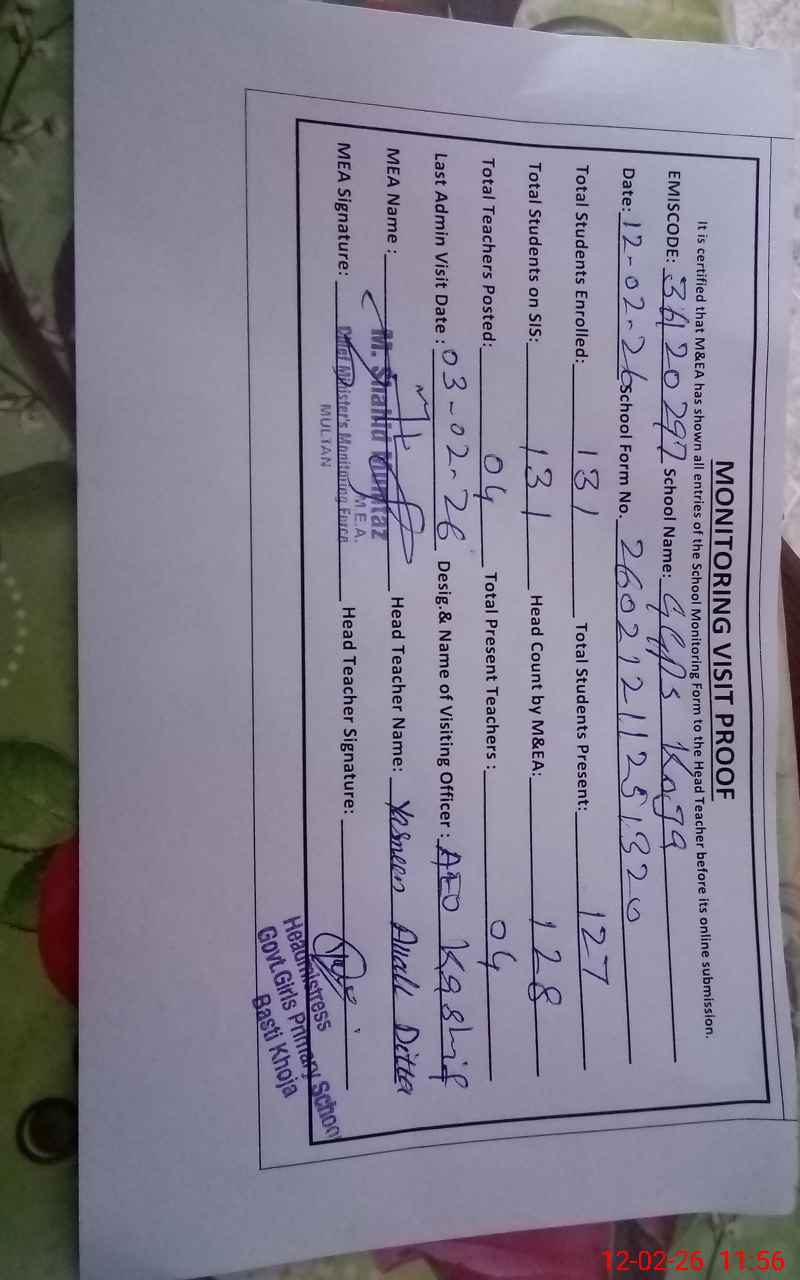 MONITORING VISIT PROOF
It is certified that M&EA has shown all entries of the School Monitoring Form to the Head Teacher before its online submission.
EMISCODE: 36120297 School Name: GGPS Koja
Date: 12-02-26 School Form No. 26021211251320
Total Students Enrolled: 131 Total Students Present: 127
Total Students on SIS: 131 Head Count by M&EA: 128
Total Teachers Posted: 04 Total Present Teachers : 04
Last Admin Visit Date : 03-02-26 Desig.& Name of Visiting Officer : AEO Kashif
MEA Name : M. Shahid Mumtaz Head Teacher Name: Yasmeen Allah Ditta
M.E.A.
MEA Signature: Chief Minister's Monitoring Force Head Teacher Signature:
MULTAN
Headmistress
Govt.Girls Primary School
Basti Khoja
12-02-26 11:56